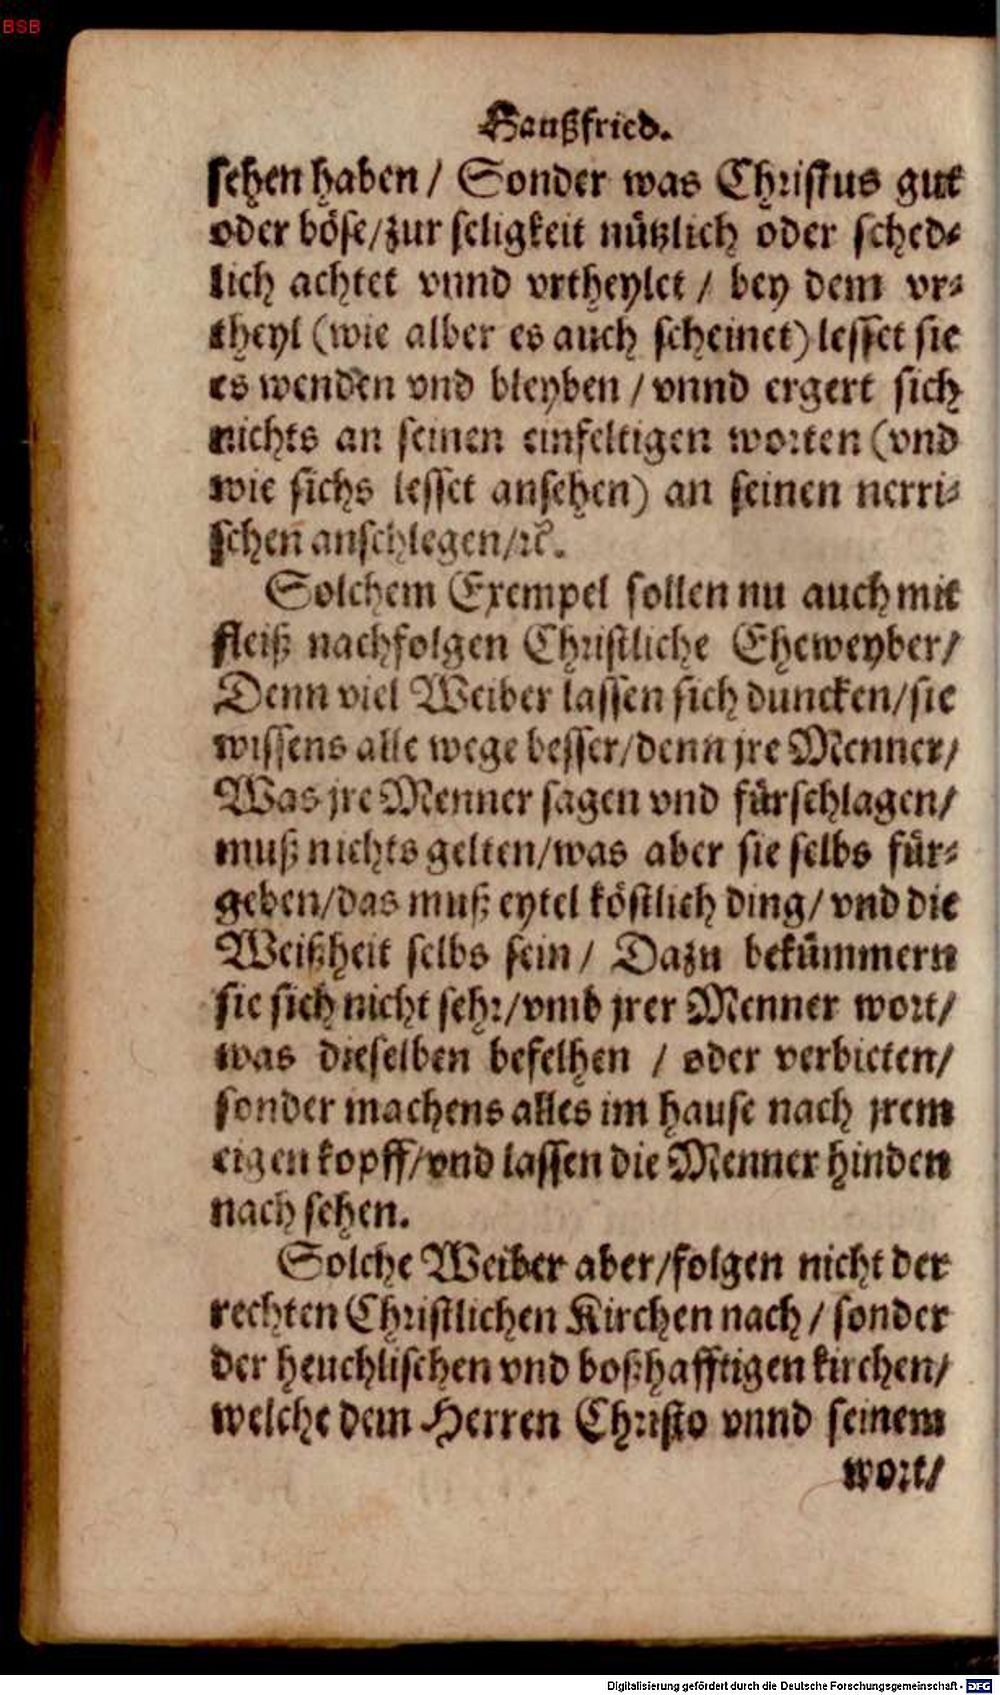 BSB
Haußfried.
sehen haben / Sonder was Christus gut
oder böse/zur seligkeit nützlich oder sched⸗
lich achtet vnnd vrtheylet / bey dem vr⸗
theyl (wie alber es auch scheinet) lesset sie
es wenden vnd bleyben / vnnd ergert sich
nichts an seinen einfeltigen worten (vnd
wie sichs lesset ansehen) an seinen nerri⸗
schen anschlegen/ꝛc̃.
Solchem Exempel sollen nu auch mit
fleiß nachfolgen Christliche Eheweyber/
Denn viel Weiber lassen sich duncken/sie
wissens alle wege besser/denn jre Menner/
Was jre Menner sagen vnd fürschlagen/
muß nichts gelten/was aber sie selbs für⸗
geben/das muß eytel köstlich ding/ vnd die
Weißheit selbs sein / Dazu bekümmern
sie sich nicht sehr/vmb jrer Menner wort/
was dieselben befelhen / oder verbieten/
sonder machens alles im hause nach jrem
eigen kopff/vnd lassen die Menner hinden
nach sehen.
Solche Weiber aber/folgen nicht der
rechten Christlichen Kirchen nach / sonder
der heuchlischen vnd boßhafftigen kirchen/
welche dem Herren Christo vnnd seinem
wort/
Digitalisierung gefördert durch die Deutsche Forschungsgemeinschaft - DFG